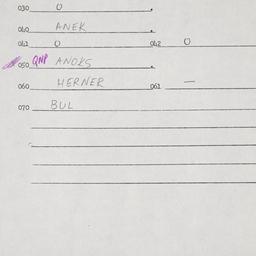 030 0
040 ANEK
041 0 042 0
050 QNP ANOKS
060 HERNER 061 —
070 BUL